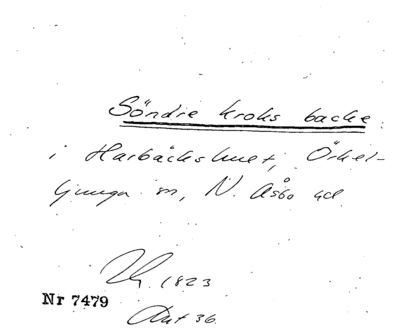 Söndre kroks backe
i Harbäckshult, Örkel-
ljunga sn, N. Åsbo hd
1823
Nr 7479
Akt 36.